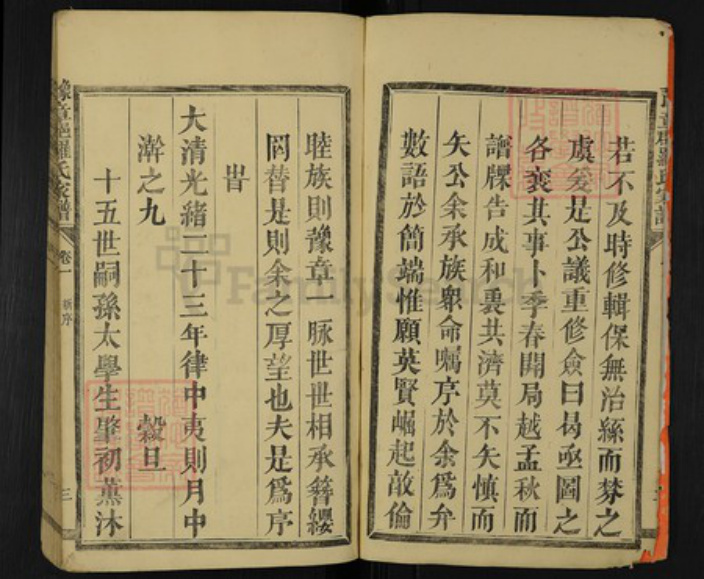 若不及時修輯保無治絲而棼之
虞爰是公議重修僉曰曷亟圖之
各襄其事卜季春開局越孟秋而
譜牒告成和衷共濟莫不矢慎而
矢公余承族衆命囑序於余爲弁
數語於簡端惟願英賢崛起敵倫
睦族則豫章一脉世世相承簪纓
罔替是則余之厚望也夫是爲序
旹
大清光緒二十三年律中夷則月中
澣之九 穀旦
十五世嗣孫太學生肇初薰沐
豫章邑羅氏家譜
卷一
新序
三
FamilySearch